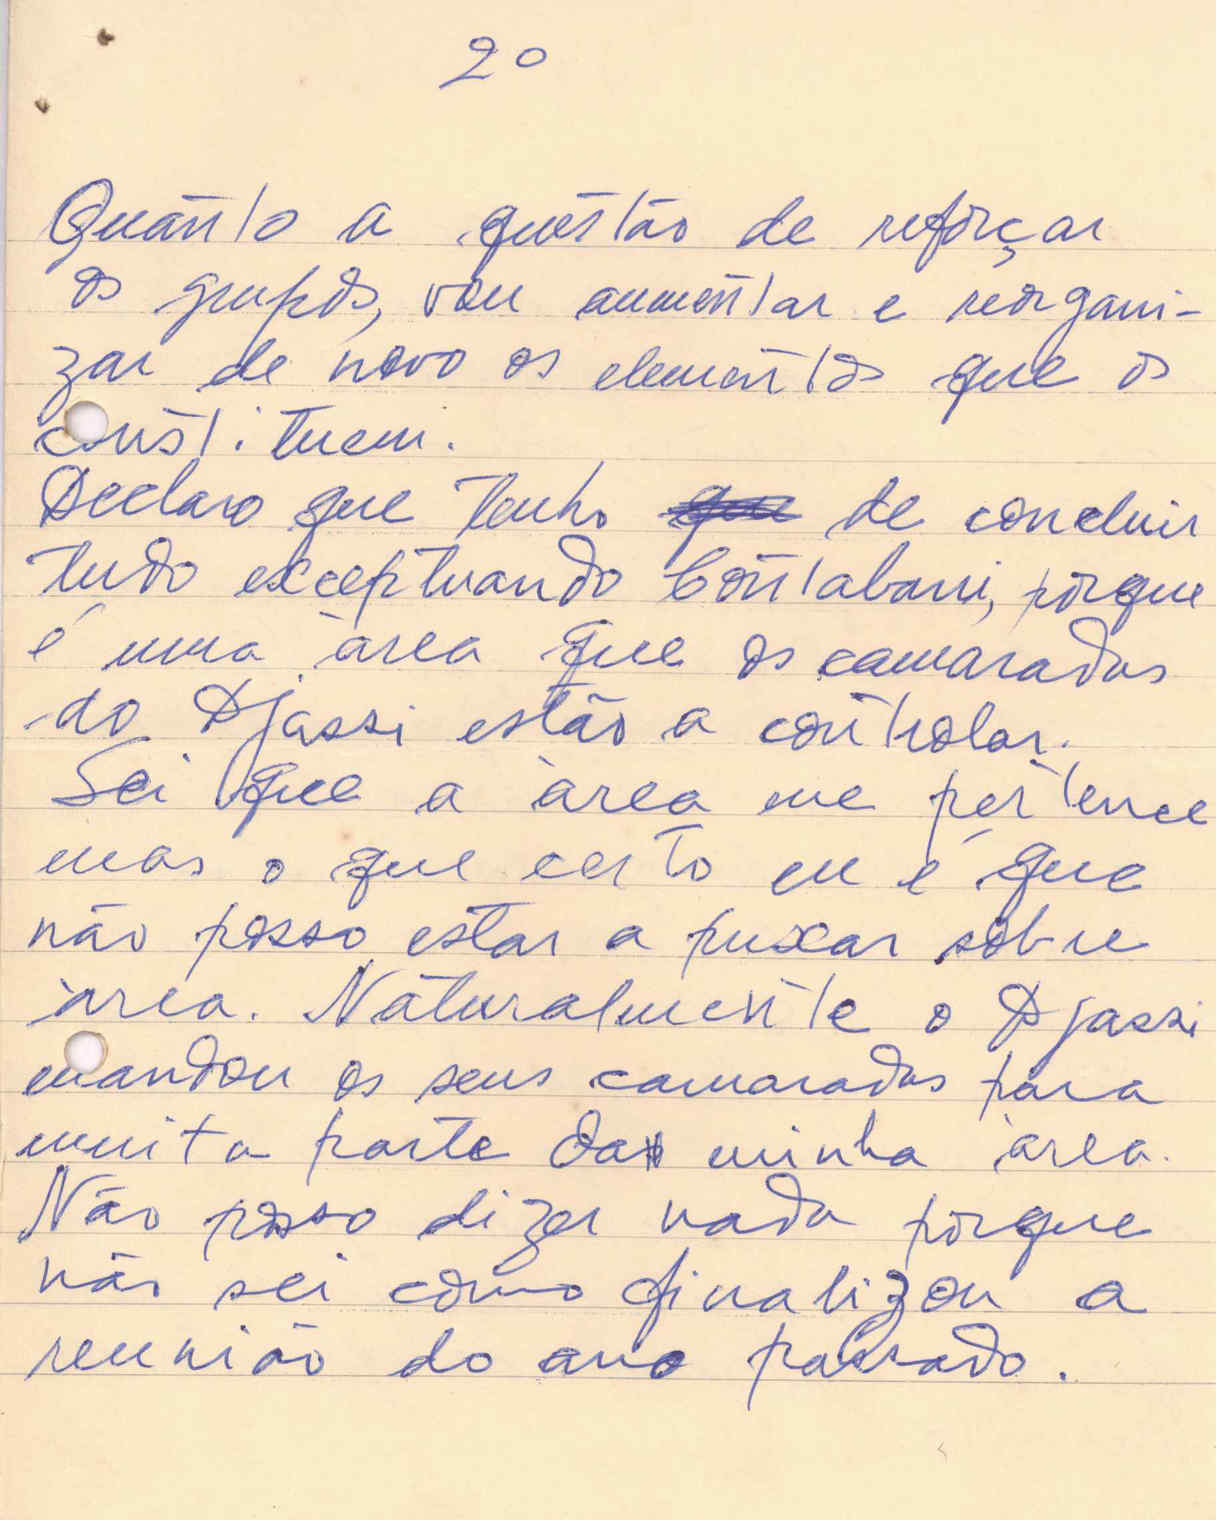 2º
Quanto a questão de reforçar
os grupos, vou aumentar e reorgani-
zar de novo os elementos que os
constituem.
Declaro que tenho que de concluir
tudo exceptuando Contabani, porque
é uma àrea que os camaradas
do Djassi estão a controlar.
Sei que a àrea me pertence
mas o que certo eu é que
não posso estar a puxar sobre
àrea. Naturalmente o Djassi
mandou os seus camaradas para
muita parte da minha àrea.
Não posso dizer nada porque
não sei como finalizou a
reunião do ano passado.